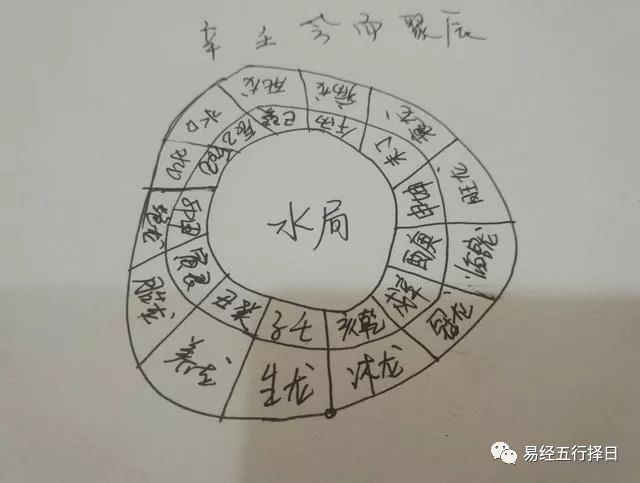 辛壬会而聚辰
死龙
病龙
衰龙
旺龙
临龙
冠龙
沐龙
生龙
养龙
胎龙
绝龙
水口
水口
巳巽
午丙
未丁
申坤
酉庚
戌辛
乾亥
子壬
癸丑
寅艮
卯甲
水局
易经五行择日